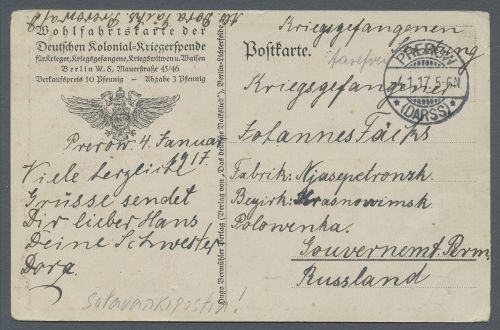 Wohlfahrtskarte der
Deutschen Kolonial-Kriegerspende
für Krieger, Kriegsgefangene, Kriegswitwen u. Waisen
Berlin W. 8, Mauerstraße 45/46
Verkaufspreis 10 Pfennig - Abgabe 3 Pfennig
Prerow 4. Januar
1917.
Viele herzliche
Grüsse sendet
Dir lieber Hans
Deine Schwester
Dora.
Hugo Vermühler Verlag (Verlag von „Das deutsche Volkslied"), Berlin-Lichterfelde
Postkarte.
Kriegsgefangenen
Sendung
PREROW
4.1.17.5-6N.
*(DARSS)*
Kriegsgefangener
Johannes
Fabrik: Njasepetronsk.
Bezirk: Krasnowimsk
Polowenka.
Gouvernemt. Perm
Russland